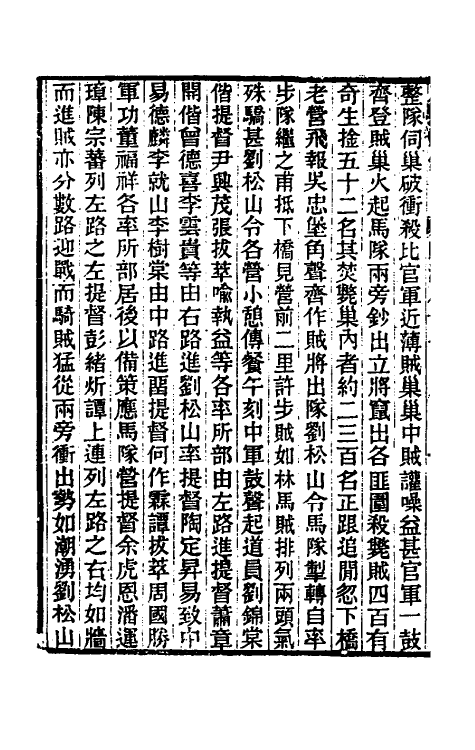 整隊伺巢破衝殺比官軍近薄賊巢巢中賊讙噪益甚官軍一鼓
齊登賊巢火起馬隊兩旁鈔出立將竄出各匪圍殺斃賊四百有
奇生捦五十二名其焚斃巢內者約二三百名正跟追閒忽下橋
老營飛報吳忠堡角聲齊作賊將出隊劉松山令馬隊掣轉自率
步隊繼之甫抵下橋見營前二里許步賊如林馬賊排列兩頭氣
殊驕甚劉松山令各營小憩傳餐午刻中軍鼓聲起道員劉錦棠
偕提督尹興茂張拔萃喩執益等各率所部由左路進提督蕭章
開偕曾德喜李雲貴等由右路進劉松山率提督陶定昇易致中
易德麟李就山李樹棠由中路進畱提督何作霖譚拔萃周國勝
軍功董福祥各率所部居後以備策應馬隊營提督余虎恩潘運
璋陳宗蕃列左路之左提督彭緒炘譚上連列左路之右均如牆
而進賊亦分數路迎戰而騎賊猛從兩旁衝出勢如潮湧劉松山